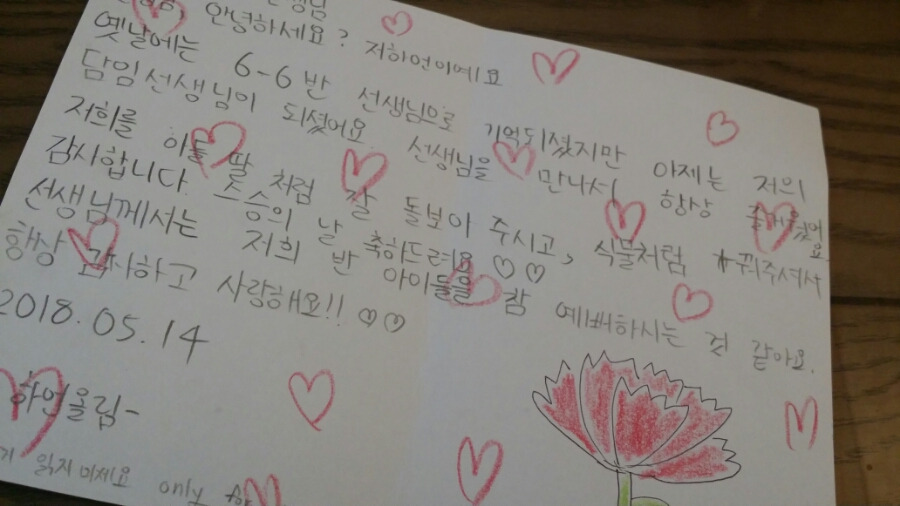 선생님
안녕하세요? 저하언이에요
옛날에는 6-6반 선생님으로 기억되셨지만 아제는 저의
담임선생님이 되셨어요 선생님을 만나서 항상 즐거웠어요
저희를 아들 딸 처럼 잘 돌보아 주시고, 식물처럼 가꿔주셔서
감사합니다. 스승의 날 축하드려요 ♡♡
선생님께서는 저희 반 아이들을 참 예뻐하시는 것 같아요.
항상 감사하고 사랑해요!! ♡♡
2018.05.14
하언올림-
읽지 마세요 only for